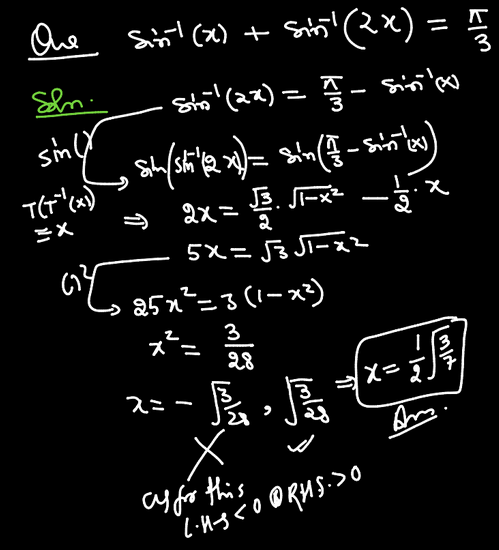 Que sin⁻¹(x) + sin⁻¹(2x) = π/3
Soln. sin⁻¹(2x) = π/3 - sin⁻¹(x)
sin() sin(sin⁻¹(2x)) = sin(π/3 - sin⁻¹(x))
T(T⁻¹(x)) = x ⇒ 2x = √3/2 · √1-x² - 1/2 · x
5x = √3 √1-x²
()² 25x² = 3(1-x²)
x² = 3/28
x = -√3/28, √3/28 ⇒ x = 1/2 √3/7
Ans.
as for this
L.H.S < 0 & RHS. > 0